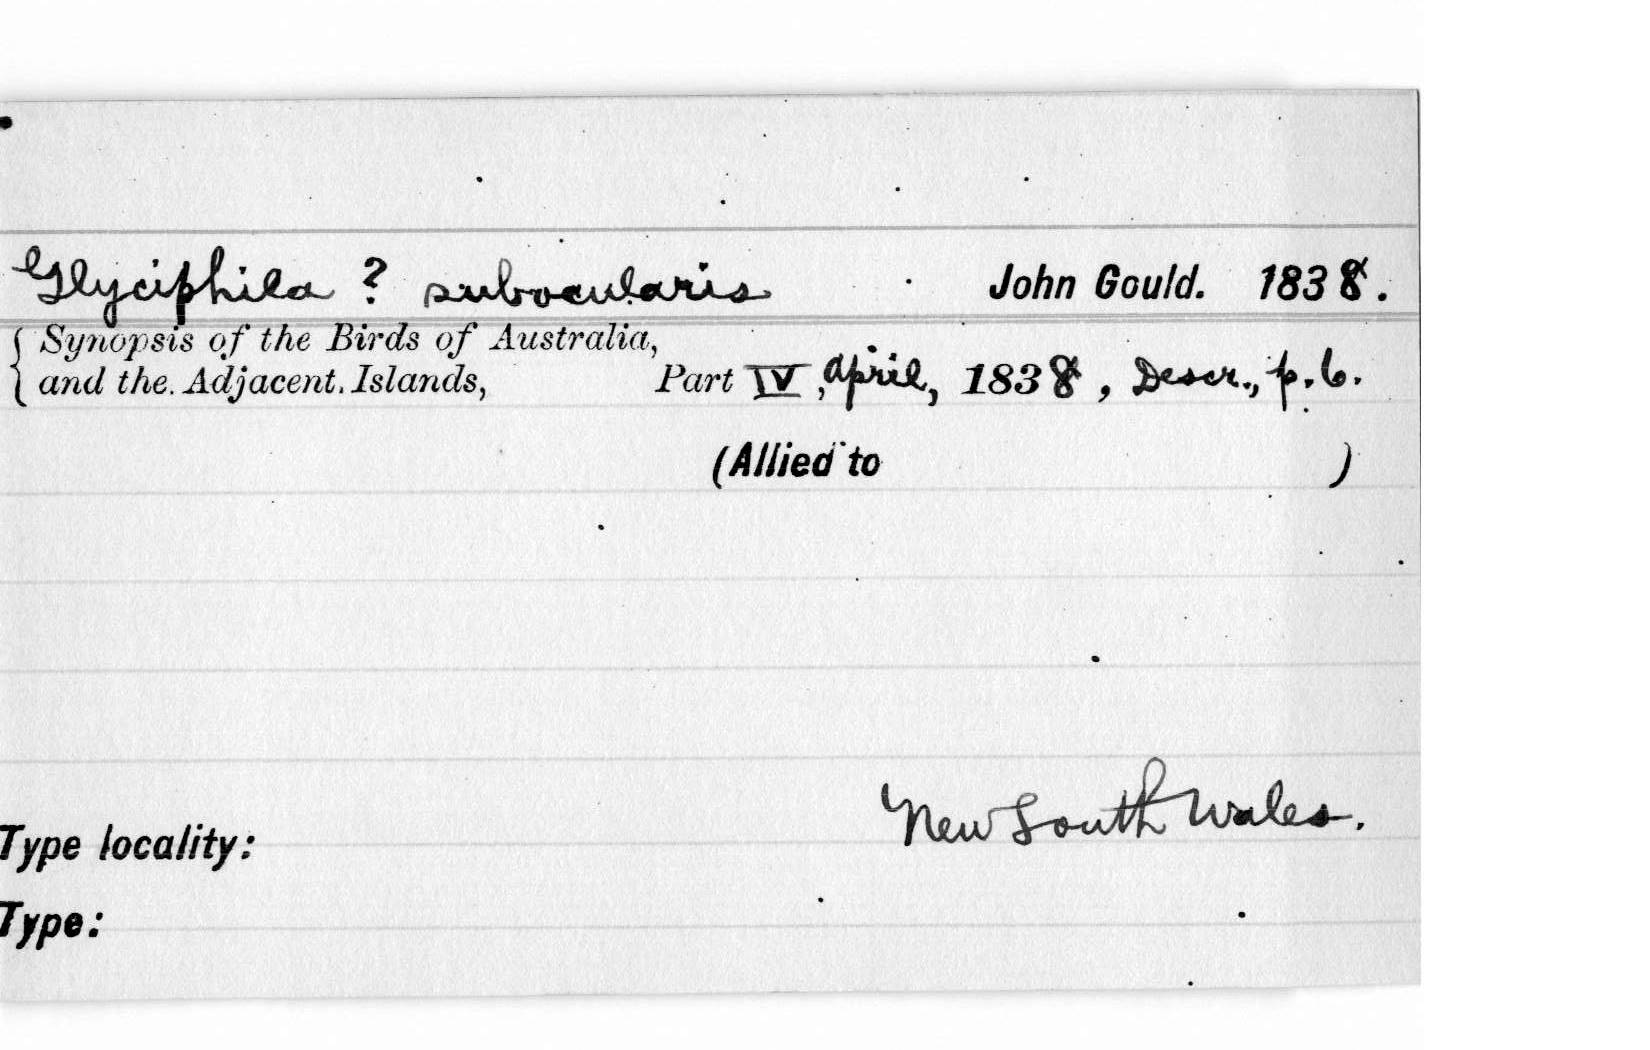 Glyciphila ? subocularis John Gould. 1838.
Synopsis of the Birds of Australia,
and the Adjacent Islands, Part IV, April, 1838, Descr., p. 6.
(Allied to )
New South Wales.
Type locality:
Type: